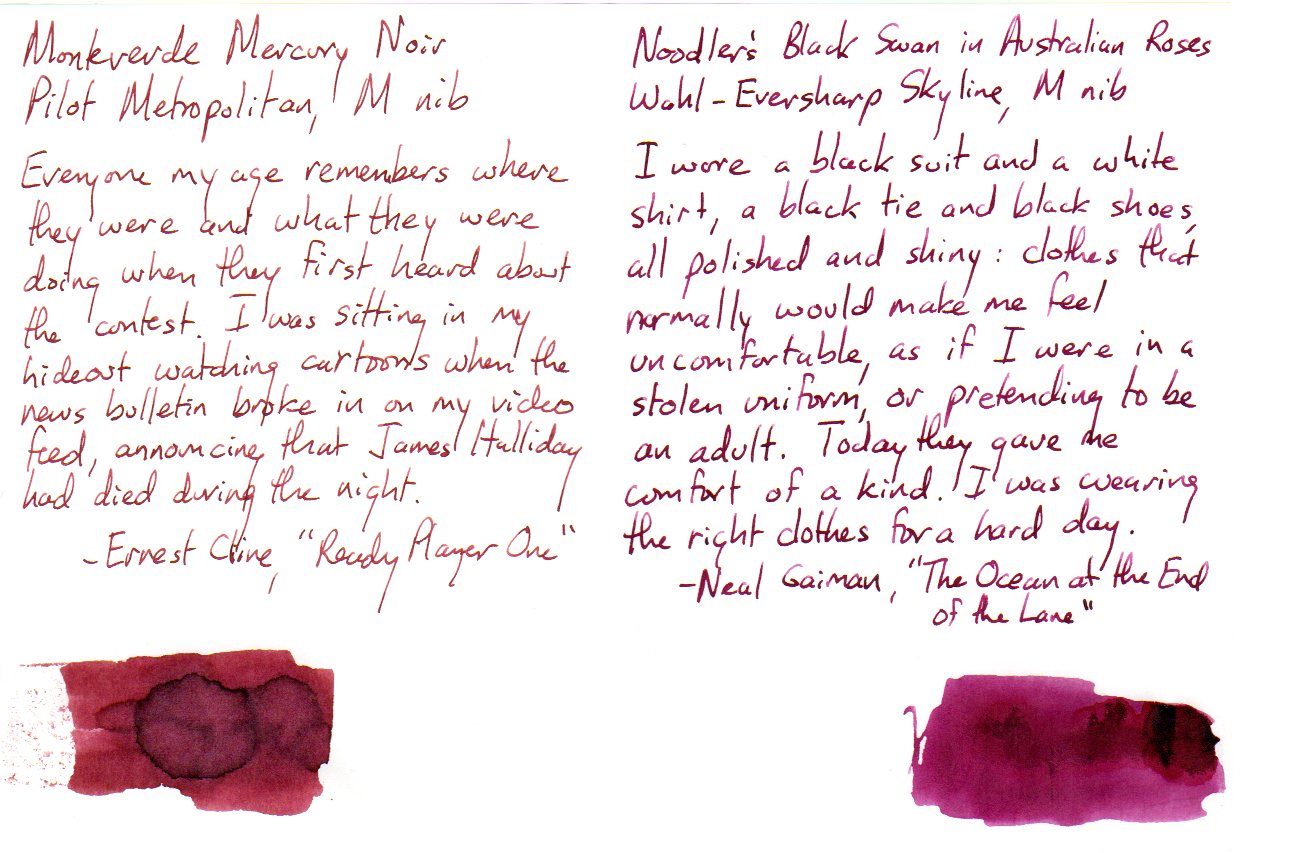 Monteverde Mercury Noir
Pilot Metropolitan, M nib
Everyone my age remembers where
they were and what they were
doing when they first heard about
the contest. I was sitting in my
hideout watching cartoons when the
news bulletin broke in on my video
feed, announcing that James Halliday
had died during the night.
-Ernest Cline, "Ready Player One"
Noodler's Black Swan in Australian Roses
Wahl-Eversharp Skyline, M nib
I wore a black suit and a white
shirt, a black tie and black shoes,
all polished and shiny: clothes that
normally would make me feel
uncomfortable, as if I were in a
stolen uniform, or pretending to be
an adult. Today they gave me
comfort of a kind. I was wearing
the right clothes for a hard day.
-Neal Gaiman, "The Ocean at the End
of the Lane"